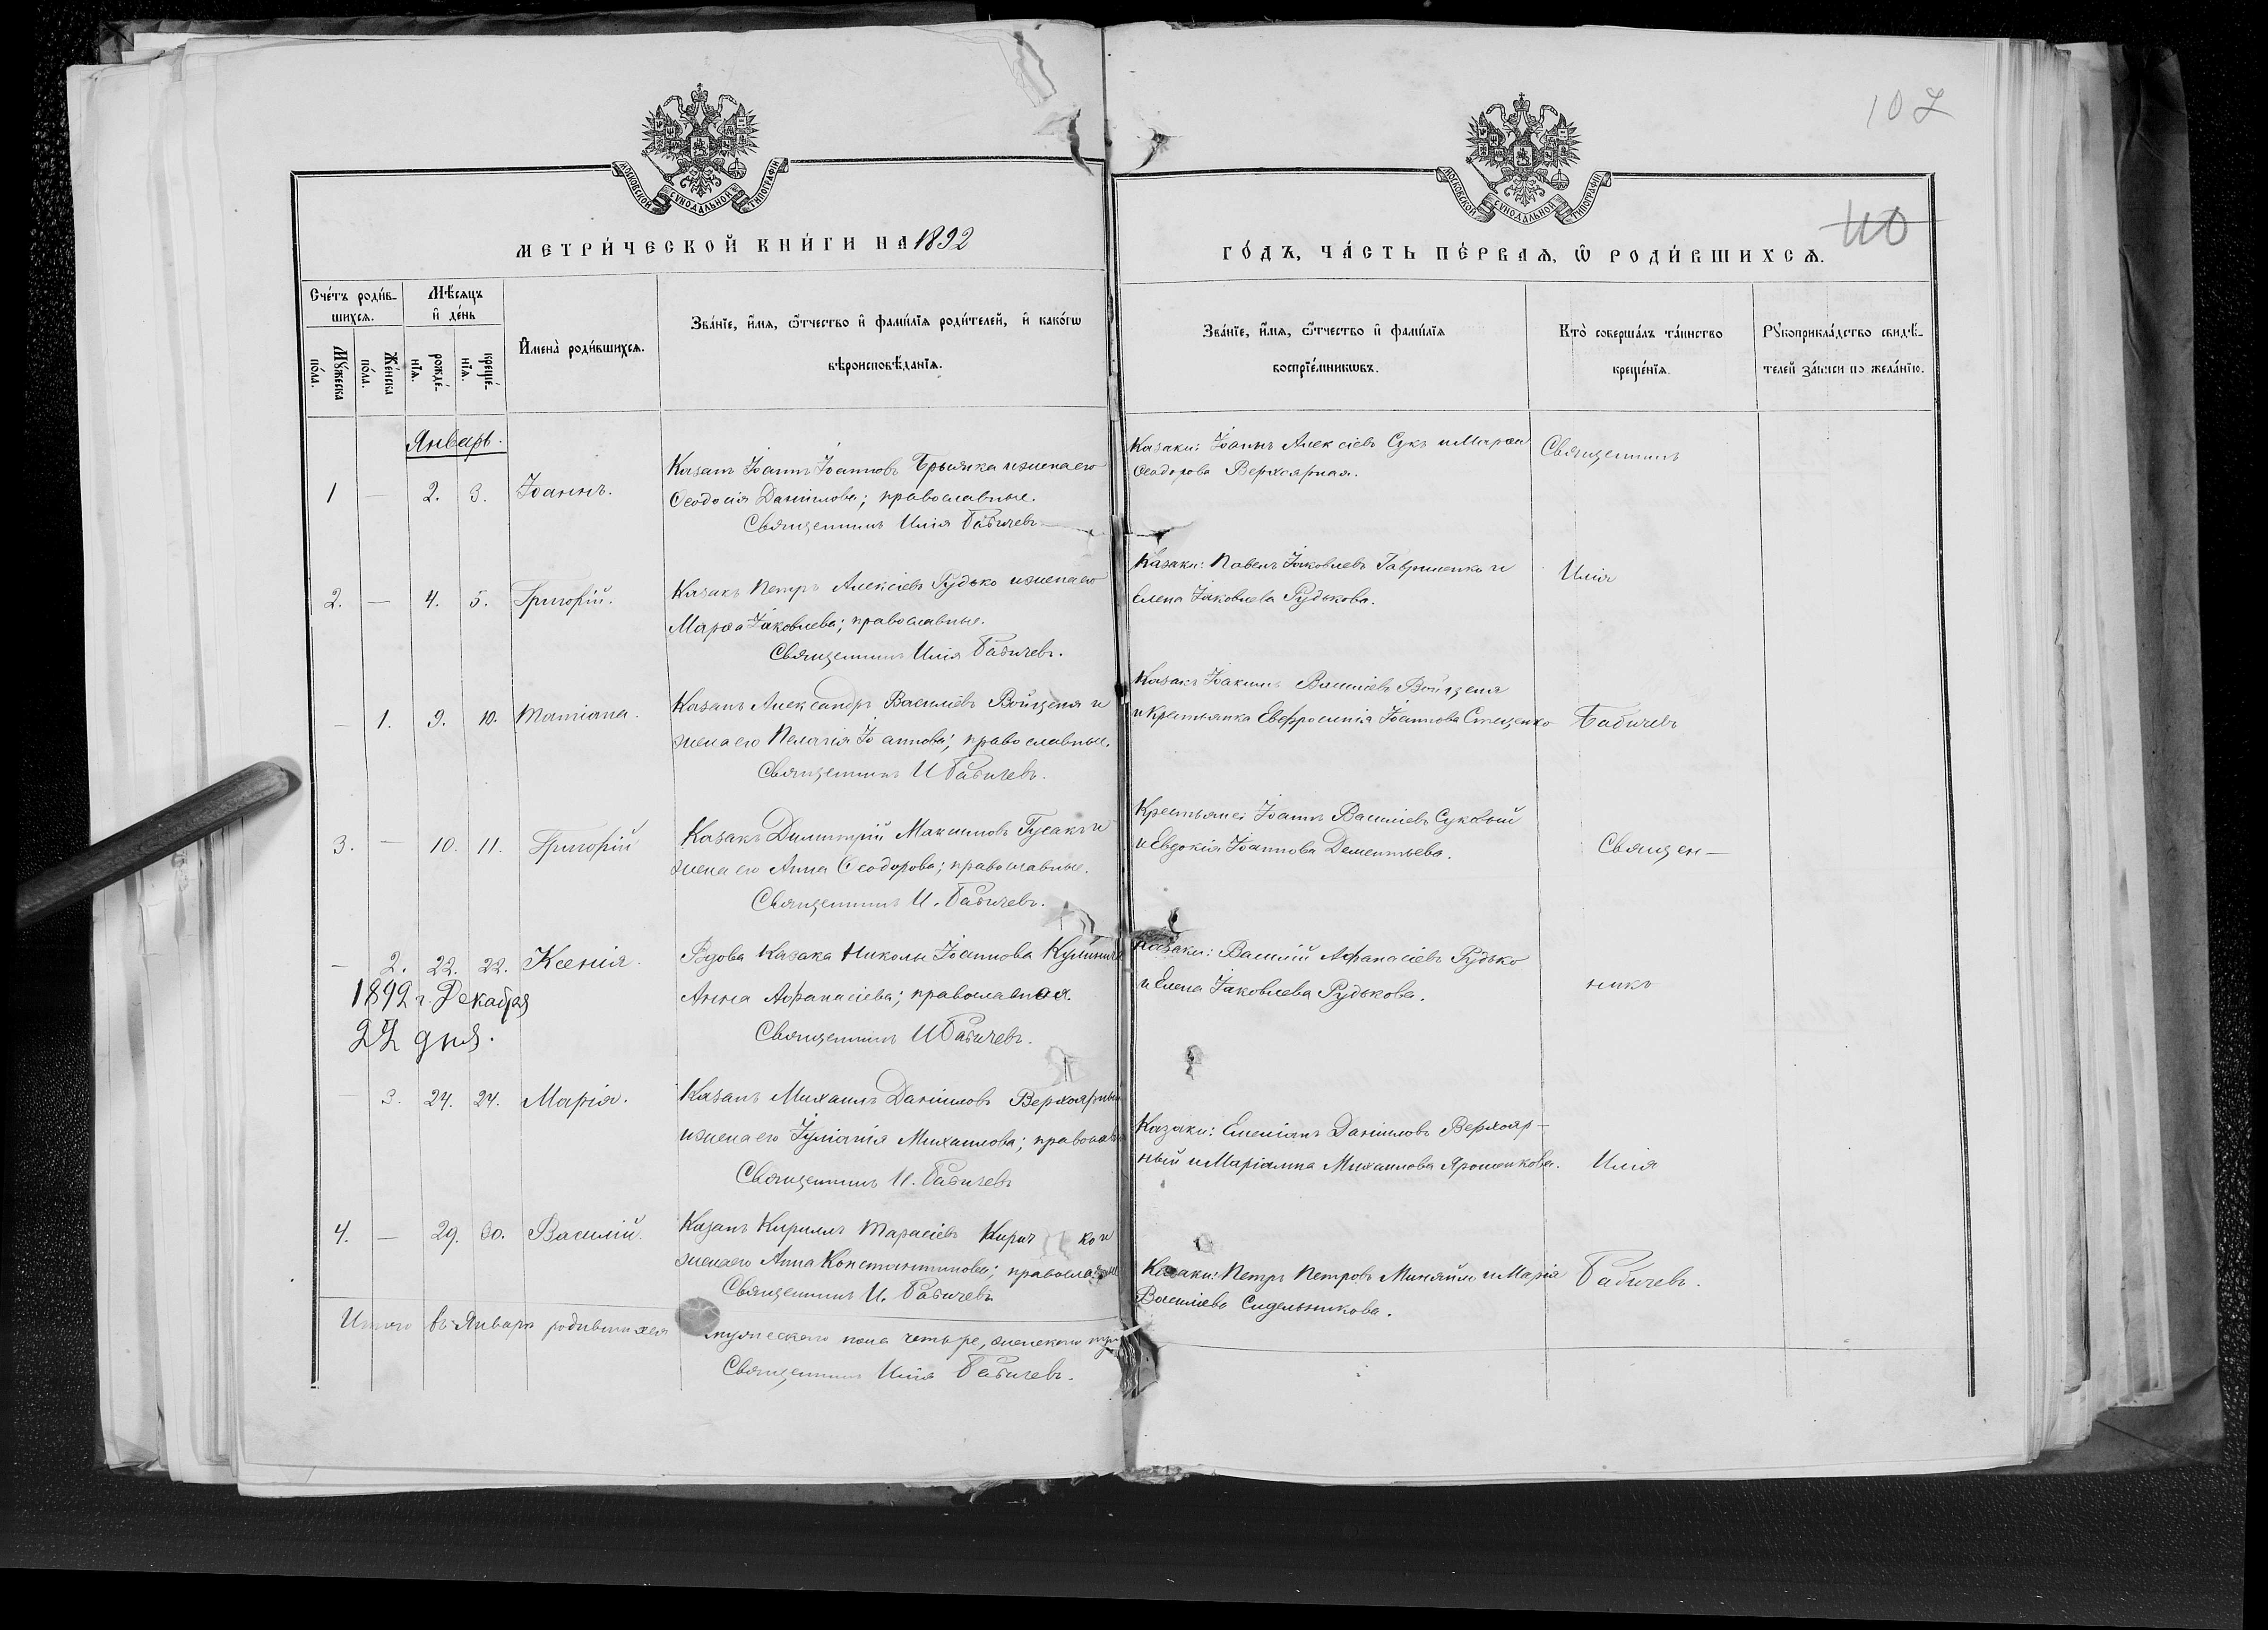 107
110
МОСКОВСКОЙ СѴНОДАЛЬНОЙ ТИПОГРАФІИ
МОСКОВСКОЙ СѴНОДАЛЬНОЙ ТИПОГРАФІИ
МЕТРИ́ЧЕСКОЙ КНИ́ГИ НА 1892
ГО́ДЪ, ЧА́СТЬ ПЕ́РВАѦ, Ѽ РОДИ́ВШИХСѦ.
Сче́тъ роди́в-
шихсѧ.
Мѣ́сѧцъ
и҆ де́нь
Мꙋ́жеска
по́ла.
Же́нска
по́ла.
рожде́-
нїѧ.
креще́-
нїѧ.
И҆мена̀ роди́вшихсѧ.
Зва́нїе, и҆́мѧ, ѻ҆́тчество и҆ фами́лїѧ роди́телей, и҆ како́гѡ
вѣроисповѣ́данїѧ.
Зва́нїе, и҆́мѧ, ѻ҆́тчество и҆ фами́лїѧ
воспрїе́мникѡвъ.
Кто̀ соверша́лъ та́инство
креще́нїѧ.
Рꙋкоприкла́дство свидѣ́-
телей за́писи по жела́нїю.
Январь.
1 — 2. 3. Іоаннъ.
Казакъ Іоаннъ Іоанновъ Брынка и жена его
Ѳеодосія Даніилова; православные.
Священникъ Илія Бабичевъ
Казаки: Іоаннъ Алексіевъ Сукъ и Марѳа
Ѳеодорова Верхоярная.
Священникъ
2. — 4. 5. Григорій.
Казакъ Петръ Алексіевъ Рудько и жена его
Марѳа Іаковлева; православные.
Священникъ Илія Бабичевъ.
Казаки: Павелъ Іаковлевъ Гавриленко и
Елена Іаковлева Рудькова.
Илія
— 1. 9. 10. Татіана.
Казакъ Александръ Василіевъ Войценя и
жена его Пелагія Іоаннова; православные.
Священникъ И Бабичевъ.
Казакъ Іоакимъ Василіевъ Войценя
и крестьянка Евфросинія Іоаннова Стеценко
Бабичевъ
3. — 10. 11. Григорій
Казакъ Димитрій Максимовъ Гусакъ и
жена его Анна Ѳеодорова; православные.
Священникъ И. Бабичевъ.
Крестьяне: Іоаннъ Василіевъ Суковый
и Евдокія Іоаннова Дементьева.
Священ—
— 2. 22. 22. Ксенія.
1892 г. Декабря
22 дня.
Вдова казака Николы Іоаннова
Анна Аѳанасіева; православная.
Священникъ И Бабичевъ.
Казаки: Василій Аѳанасіевъ Рудько
и Елена Іаковлева Рудькова.
никъ
— 3. 24. 24. Марія.
Казакъ Михаилъ Даніиловъ Верхоярный
и жена его Іуліанія Михаилова;
Священникъ И. Бабичевъ
Казаки: Емеліанъ Даніиловъ Верхояр-
ный и Маріамна Михаилова Ярошенкова.
Илія
4. — 29. 30. Василій.
Казакъ Кириллъ Тарасіевъ Кирич ко и
жена его Анна Константинова;
Священникъ И. Бабичевъ
Казаки: Петръ Петровъ Минайло и Марія
Василіева Сидельникова.
Бабичевъ.
Итого въ Январѣ родившихся мужескаго пола четыре, женскаго
Священникъ Илія Бабичевъ.